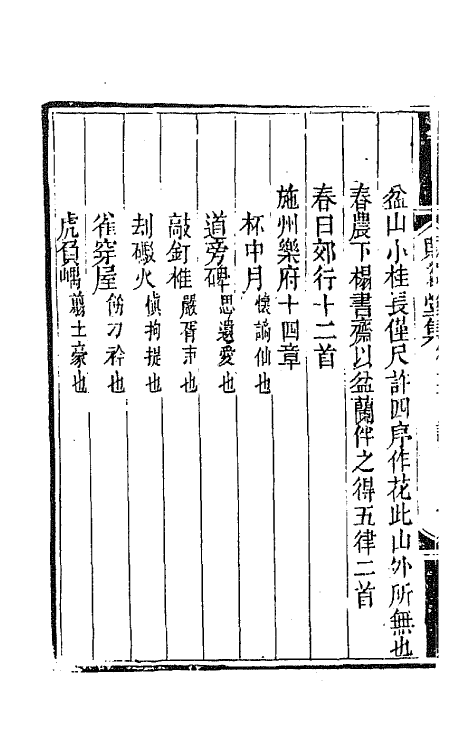 盆山小桂長僅尺許四序作花此山外所無也
春農下榻書齋以盆蘭伴之得五律二首
春日郊行十二首
施州樂府十四章
杯中月懷謫仙也
道旁碑思遺愛也
敲釘椎嚴胥吏也
刦礮火慎拘提也
雀穿屋傍刁衿也
虎負嵎翦土豪也